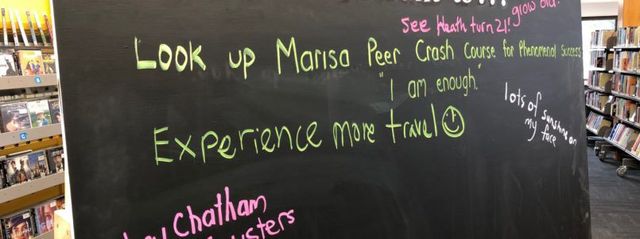 grow old!
See Heath turn 21!
Look up Marisa Peer Crash Course for Phenomenal Success
"I am enough."
lots of sunshine on
my face
Experience more travel
Chatham